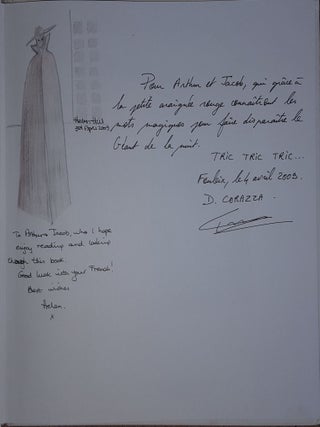 Pour Arthur et Jacob, qui grâce à
la petite araignée rouge connaîtront les
mots magiques pour faire disparaître le
Géant de la nuit.
TRIC TRIC TRIC...
le 4 avril 2009.
D. CORAZZA
3rd April 2009
To Arthur & Jacob, who I hope
enjoy reading and looking
through this book.
Good luck with your French!
Best wishes
Helen.
x